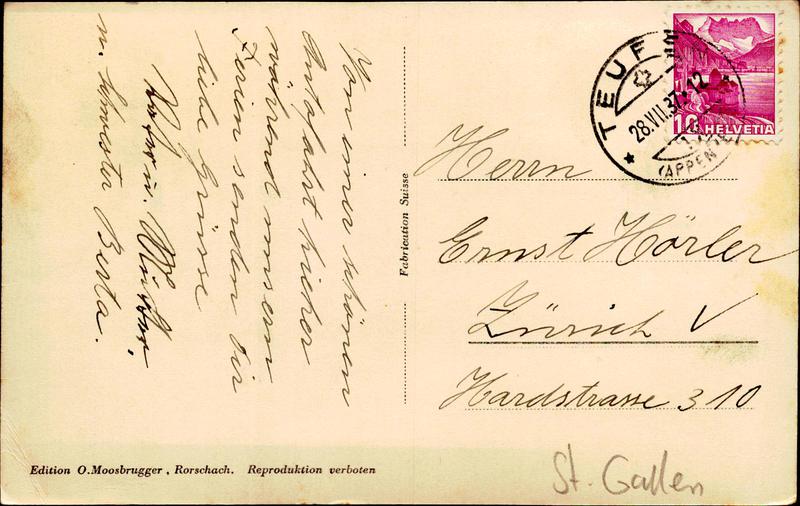 Von einer schönen
Autofahrt hieher
während unsern
Ferien senden dir
liebe Grüsse
u.
m. Schwester Berta.
Fabrication Suisse
TEUF
28.VII.37.12
(APPEN
10 HELVETIA
Herrn
Ernst Hörler
Zürich V
Hardstrasse 310
Edition O.Moosbrugger, Rorschach. Reproduktion verboten
St. Gallen